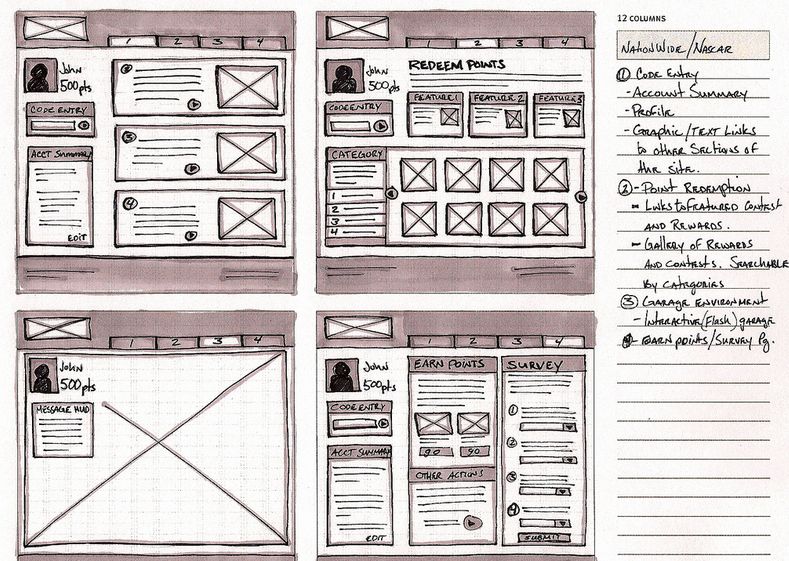 1 2 3 4
John
500pts
CODE ENTRY
ACCT SUMMARY
EDIT
2
3
4
1 2 3 4
John
500pts
CODE ENTRY
CATEGORY
1
2
3
4
REDEEM POINTS
FEATURE 1 FEATURE 2 FEATURE 3
1 2 3 4
JOHN
500pts
MESSAGE HUD
1 2 3 4
JOHN
500pts
CODE ENTRY
ACCT SUMMARY
EDIT
EARN POINTS
GO GO
OTHER ACTIONS
SURVEY
1
2
3
4
SUBMIT
12 COLUMNS
NATIONWIDE/NASCAR
① CODE ENTRY
- ACCOUNT SUMMARY
- PROFILE
- GRAPHIC/TEXT LINKS
to other SECTIONS OF
the SITE.
② - POINT REDEMPTION
- LINKS to FEATURED CONTEST
AND REWARDS.
- GALLERY OF REWARDS
AND CONTESTS. SEARCHABLE
by CATEGORIES
③ GARAGE ENVIRONMENT
- INTERACTIVE (Flash) garage
④ - EARN POINTS/SURVEY Pg.